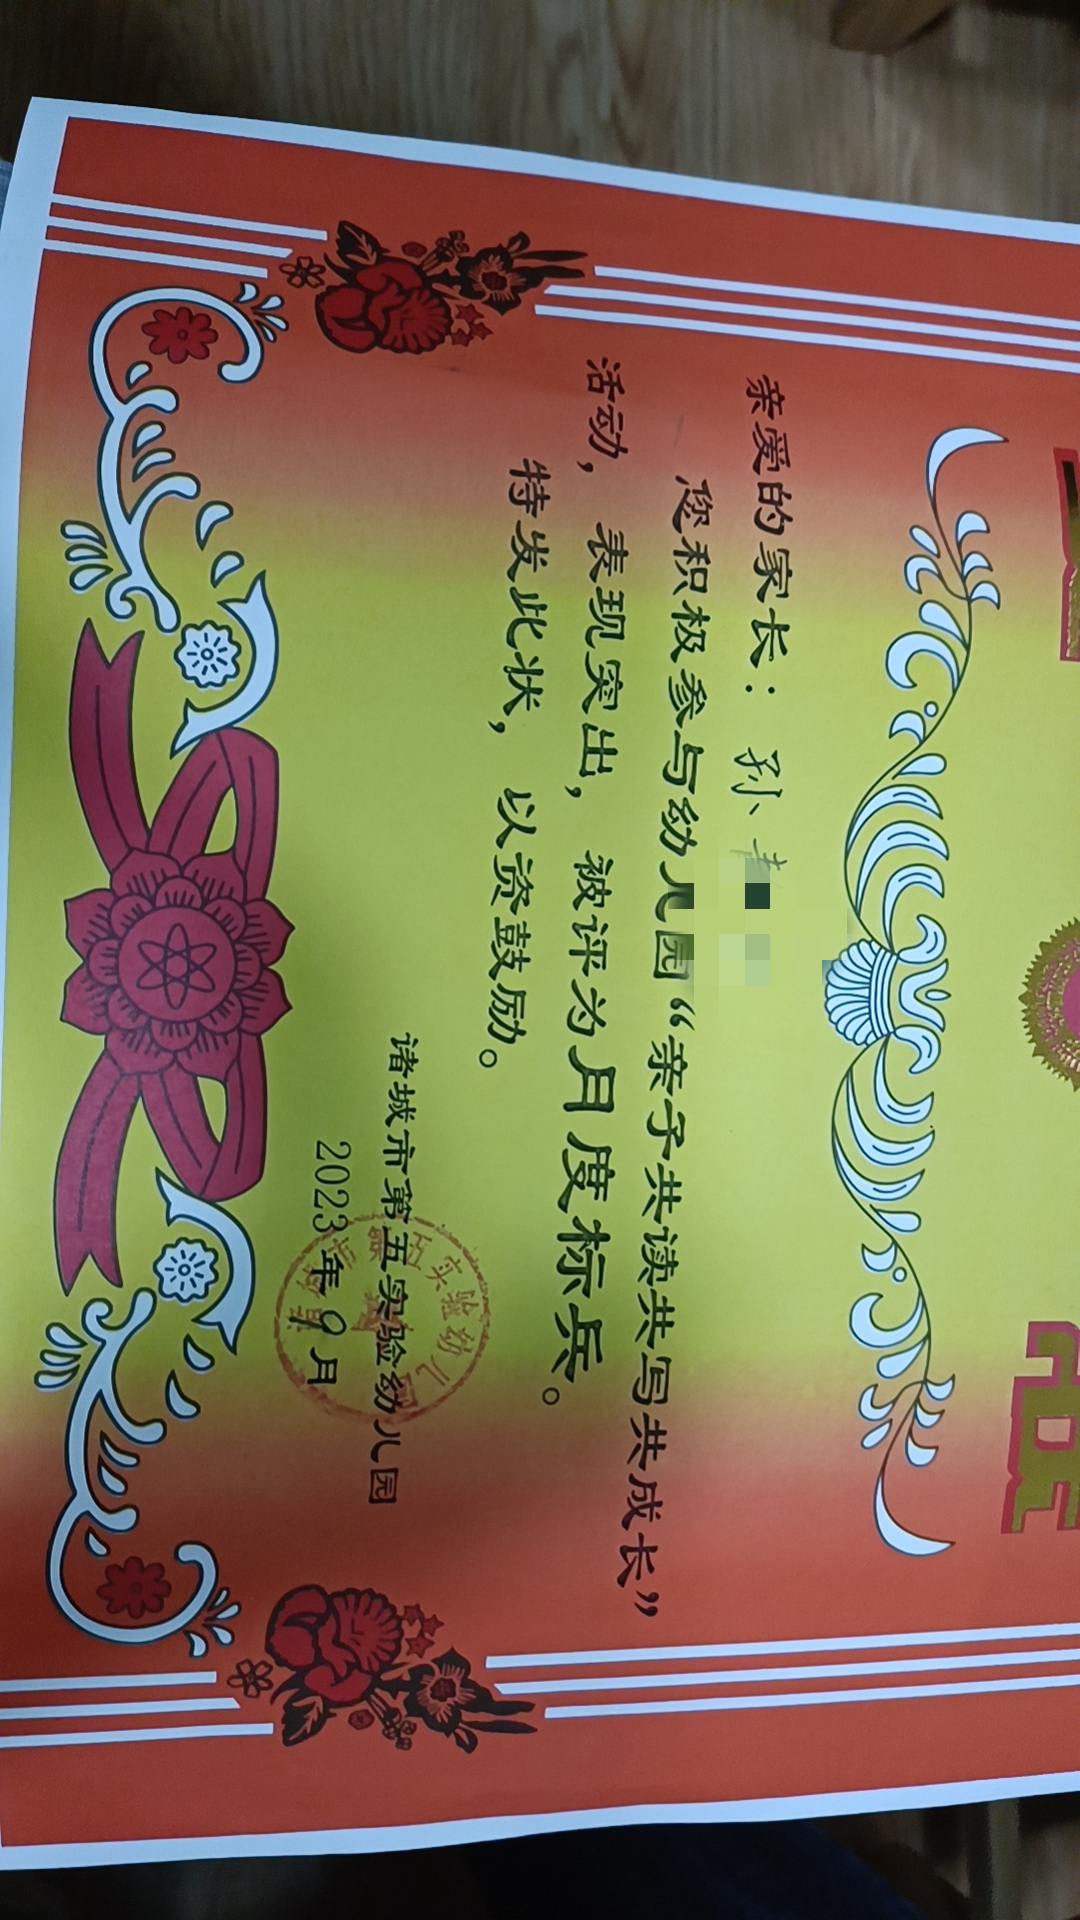 亲爱的家长：孙
您积极参与幼儿园“亲子共读共写共成长”
活动，表现突出，被评为月度标兵。
特发此状，以资鼓励。
诸城市第五实验幼儿园
2023年9月